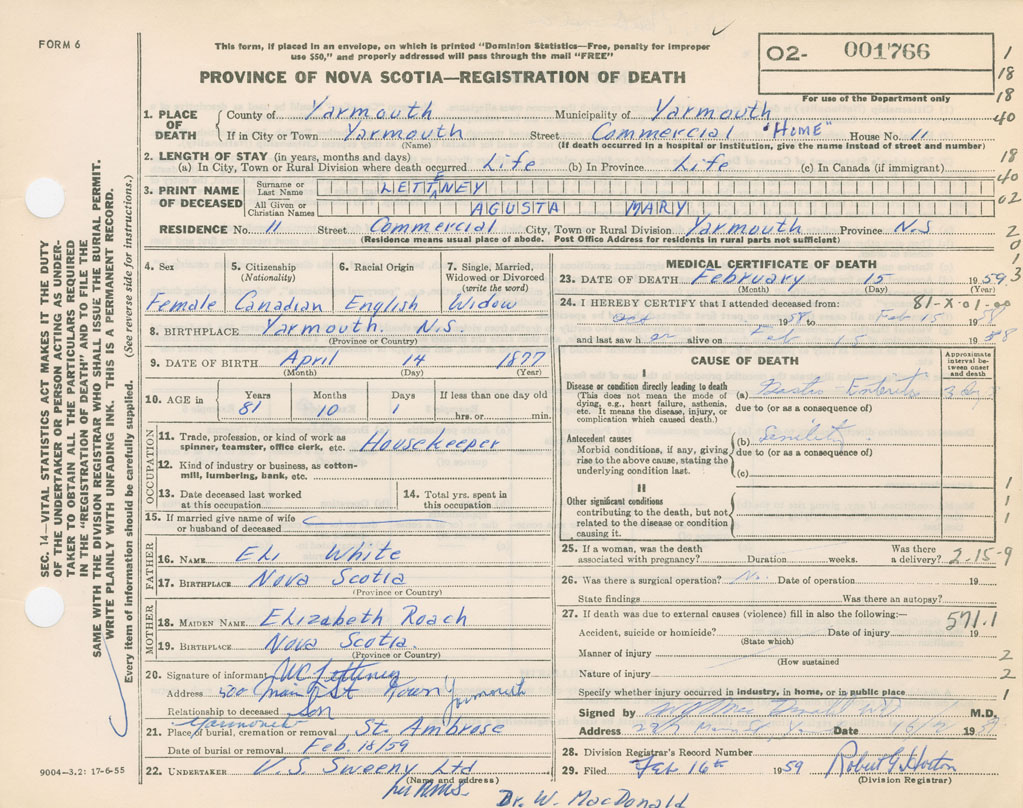 FORM 6
This form, if placed in an envelope, on which is printed "Dominion Statistics—Free, penalty for improper
use $50," and properly addressed will pass through the mail "FREE"
PROVINCE OF NOVA SCOTIA—REGISTRATION OF DEATH
O2- 001766
For use of the Department only
1
18
18
40
18
40
02
2
0
1
3
1. PLACE OF DEATH
County of Yarmouth Municipality of Yarmouth
If in City or Town Yarmouth Street Commercial "HOME" House No. 11
(Name) (If death occurred in a hospital or institution, give the name instead of street and number)
2. LENGTH OF STAY (in years, months and days)
(a) In City, Town or Rural Division where death occurred Life (b) In Province Life (c) In Canada (if immigrant)
3. PRINT NAME OF DECEASED
Surname or Last Name LETTENEY
All Given or Christian Names AGUSTA MARY
RESIDENCE No. 11 Street Commercial City, Town or Rural Division Yarmouth Province N.S
(Residence means usual place of abode. Post Office Address for residents in rural parts not sufficient)
4. Sex 5. Citizenship (Nationality) 6. Racial Origin 7. Single, Married, Widowed or Divorced (write the word)
Female Canadian English Widow
8. BIRTHPLACE Yarmouth. N.S.
(Province or Country)
9. DATE OF BIRTH April 14 1877
(Month) (Day) (Year)
10. AGE in Years Months Days If less than one day old
81 10 1 hrs. or min.
OCCUPATION
11. Trade, profession, or kind of work as spinner, teamster, office clerk, etc. Housekeeper
12. Kind of industry or business, as cotton-mill, lumbering, bank, etc.
13. Date deceased last worked at this occupation
14. Total yrs. spent in this occupation
15. If married give name of wife or husband of deceased
FATHER
16. NAME Eli White
17. BIRTHPLACE Nova Scotia
(Province or Country)
MOTHER
18. MAIDEN NAME Elizabeth Roach
19. BIRTHPLACE Nova Scotia.
(Province or Country)
20. Signature of informant WC Letteney
Address 500 Main St Town Yarmouth
Relationship to deceased son
Yarmouth
21. Place of burial, cremation or removal St. Ambrose
Date of burial or removal Feb. 18/59
22. UNDERTAKER V.S. Sweeny Ltd
(Name and address)
MEDICAL CERTIFICATE OF DEATH
23. DATE OF DEATH February 15 1959
(Month) (Day) (Year)
81-X-01-00
24. I HEREBY CERTIFY that I attended deceased from:
Oct 1958 to Feb 15 1958
and last saw h er alive on Feb 15 1958
CAUSE OF DEATH
Approximate interval between onset and death
I
Disease or condition directly leading to death
(This does not mean the mode of dying, e.g., heart failure, asthenia, etc. It means the disease, injury, or complication which caused death.)
(a) Gastro Enteritis 3 days
due to (or as a consequence of)
Antecedent causes
Morbid conditions, if any, giving rise to the above cause, stating the underlying condition last.
(b) Senility
due to (or as a consequence of)
(c)
II
Other significant conditions
contributing to the death, but not related to the disease or condition causing it.
1
1
25. If a woman, was the death associated with pregnancy? Duration weeks. Was there a delivery? 2-15-9
26. Was there a surgical operation? No. Date of operation 19
State findings Was there an autopsy?
27. If death was due to external causes (violence) fill in also the following:— 571.1
Accident, suicide or homicide? Date of injury 19
(State which)
Manner of injury 2
(How sustained
Nature of injury 2
Specify whether injury occurred in industry, in home, or in public place 1
Signed by M.D.
Address Date 16/2 1959
28. Division Registrar's Record Number
29. Filed Feb 16th 1959 Robert G Horton
(Division Registrar)
Dr. W. MacDonald
SEC. 14—VITAL STATISTICS ACT MAKES IT THE DUTY
OF THE UNDERTAKER OR PERSON ACTING AS UNDER-
TAKER TO OBTAIN ALL THE PARTICULARS REQUIRED
IN THE "REGISTRATION OF DEATH" AND TO FILE THE
SAME WITH THE DIVISION REGISTRAR WHO SHALL ISSUE THE BURIAL PERMIT.
WRITE PLAINLY WITH UNFADING INK. THIS IS A PERMANENT RECORD.
Every item of information should be carefully supplied. (See reverse side for instructions.)
9004—3.2: 17-6-55